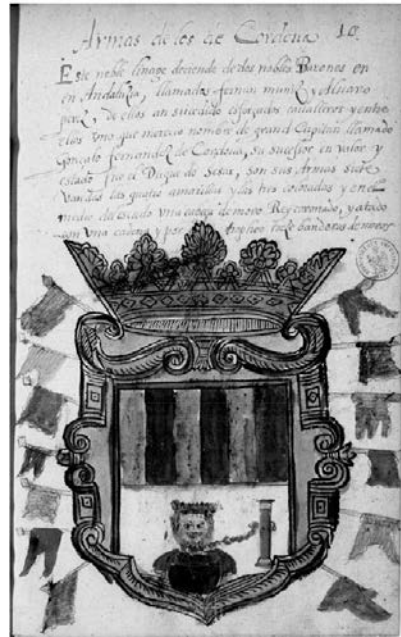 Armas de los de Cordoua 10.
Este noble linage deciende de dos nobles Barones en
en Andaluzia, llamados fernan muniz y Aluaro
perez, de ellos an sucedido esforzados caualleros y entre
ellos vno que mercio nombre de grand Capitan llamado
Gonçalo fernandez de Cordoua, su sucesor en valor y
estado fue el Duque de Sesar, son sus Armas siete
vandas las quatro amarillas y las tres coloradas y en el
medio del Escudo vna cabeça de moro Rey coronado, y atado
con vna cadena y por tropheo treze banderas de moros